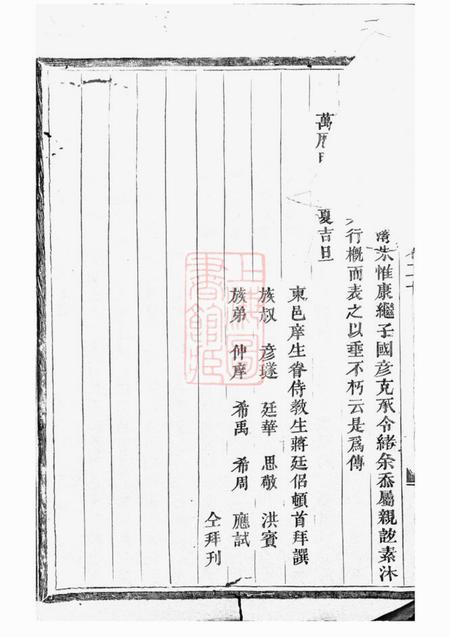 惟康繼子國彥克承令緒余忝屬親誼素沐
行概而表之以垂不朽云是爲傳
萬曆 夏吉旦
東邑庠生眷侍教生蔣廷侶頓首拜譔
族叔 彥璲 廷華 思敬 洪賓
族弟 仲庠 希禹 希周 應試
仝拜刊
上海圖書館藏